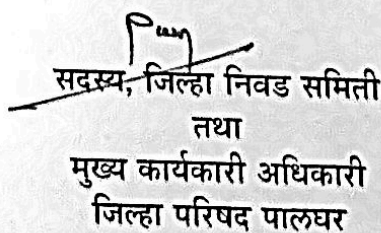 सदस्य, जिल्हा निवड समिती
तथा
मुख्य कार्यकारी अधिकारी
जिल्हा परिषद पालघर